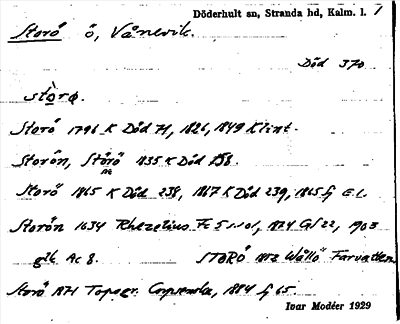 Döderhult sn, Stranda hd, Kalm. l. 1
Storö ö, Vånevik.
Död 370
stòrø.
Storö 1796 K Död 71, 1826, 1849 Klint.
Storön, Störö 1835 K Död 258.
Storö 1865 K Död 238, 1867 K Död 239, 1865 fj E.l.
Storön 1634 Rhezelius Fc 5 1824 GS 22, 1903
glk Ac 8. STORÖ 1872 Wållö Farvatten
Storö 1871 Topogr. 1884 fj 65
Ivar Modéer 1929